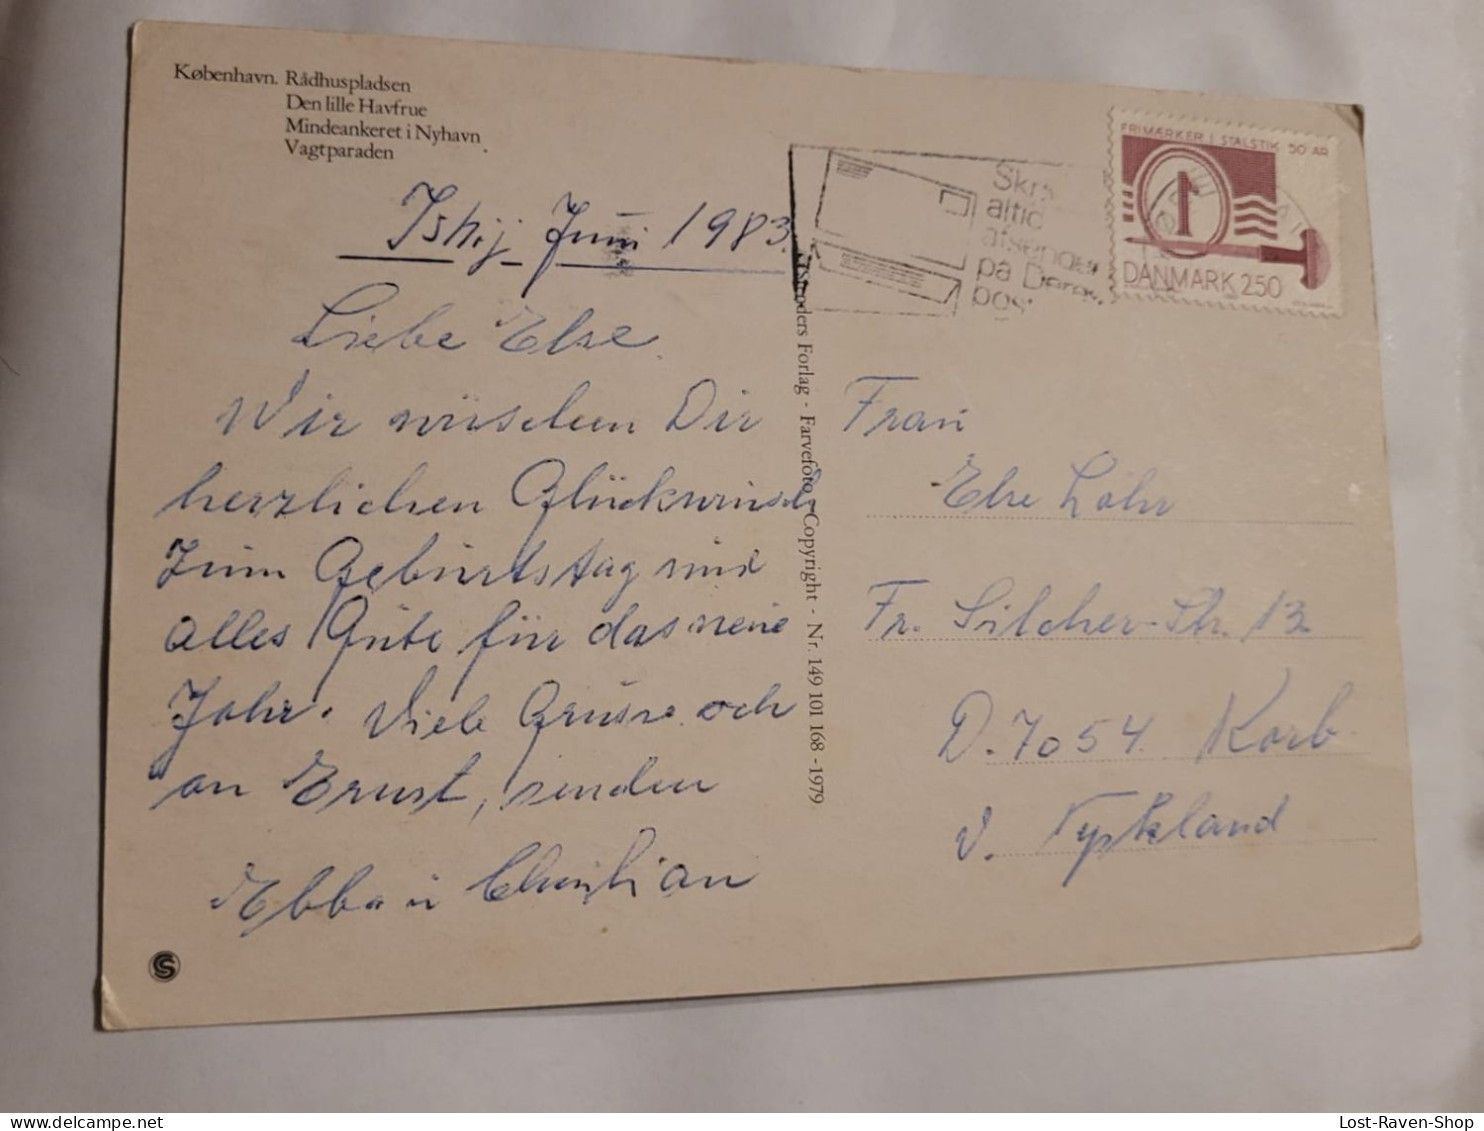 København. Rådhuspladsen
Den lille Havfrue
Mindeankeret i Nyhavn
Vagtparaden
Ishøj Juni 1983.
Liebe Else.
Wir wüschen Dir
herzlichen Glückwunsch
zum Geburtstag und
alles Gute für das neue
Jahr. Viele Grüsse och
an Ernst, senden
Ebba u Christian
Stenders Forlag - Farvefoto - Copyright - Nr. 149 101 168 - 1979
Skriv
altid
afsender
på Deres
post
FRIMÆRKER I STÅLSTIK 50 ÅR
1
DANMARK 250
Frau
Else Löhr
Fr. Silcher-Str. 13
D. 7054 Korb
V. Tyskland
S
Lost-Raven-Shop